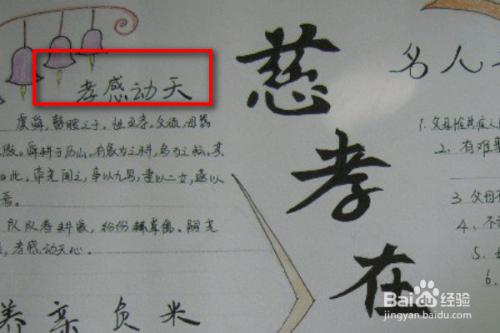 孝感动天
虞舜,瞽瞍之子。性至孝。父顽,母嚚
傲。舜耕于历山。有象为之耕,鸟为之耘。其
此。帝尧闻之,事以九男,妻以二女,遂以
焉。
队队春耕象,纷纷耘草禽。嗣尧
,孝感动天心。
养亲负米
慈孝在
名人
1. 父母
2. 有难
3. 父母
4. 不
5.
6.
Baidu经验
jingyan.baidu.com